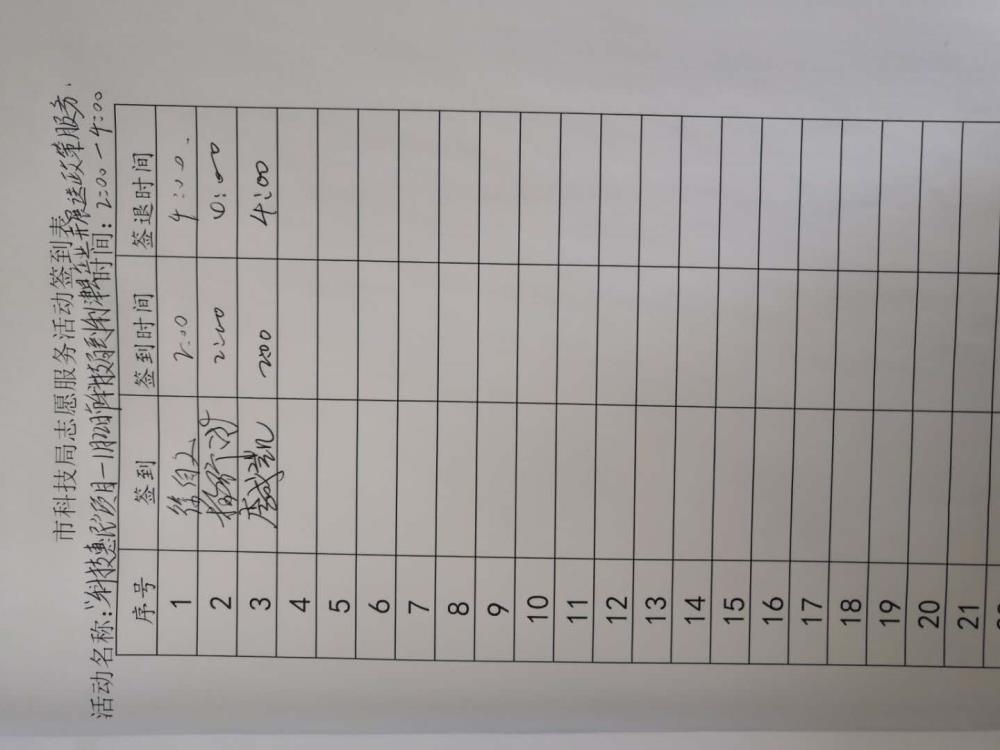 市科技局志愿服务活动签到表
活动名称：“科技惠民”项目一月 科技局到利津 企业开展送政策服务. 时间：2:00-4:00
序号 签到 签到时间 签退时间
1 2:00 4:00.
2 2:00 4:00
3 200 4:00
4
5
6
7
8
9
10
11
12
13
14
15
16
17
18
19
20
21